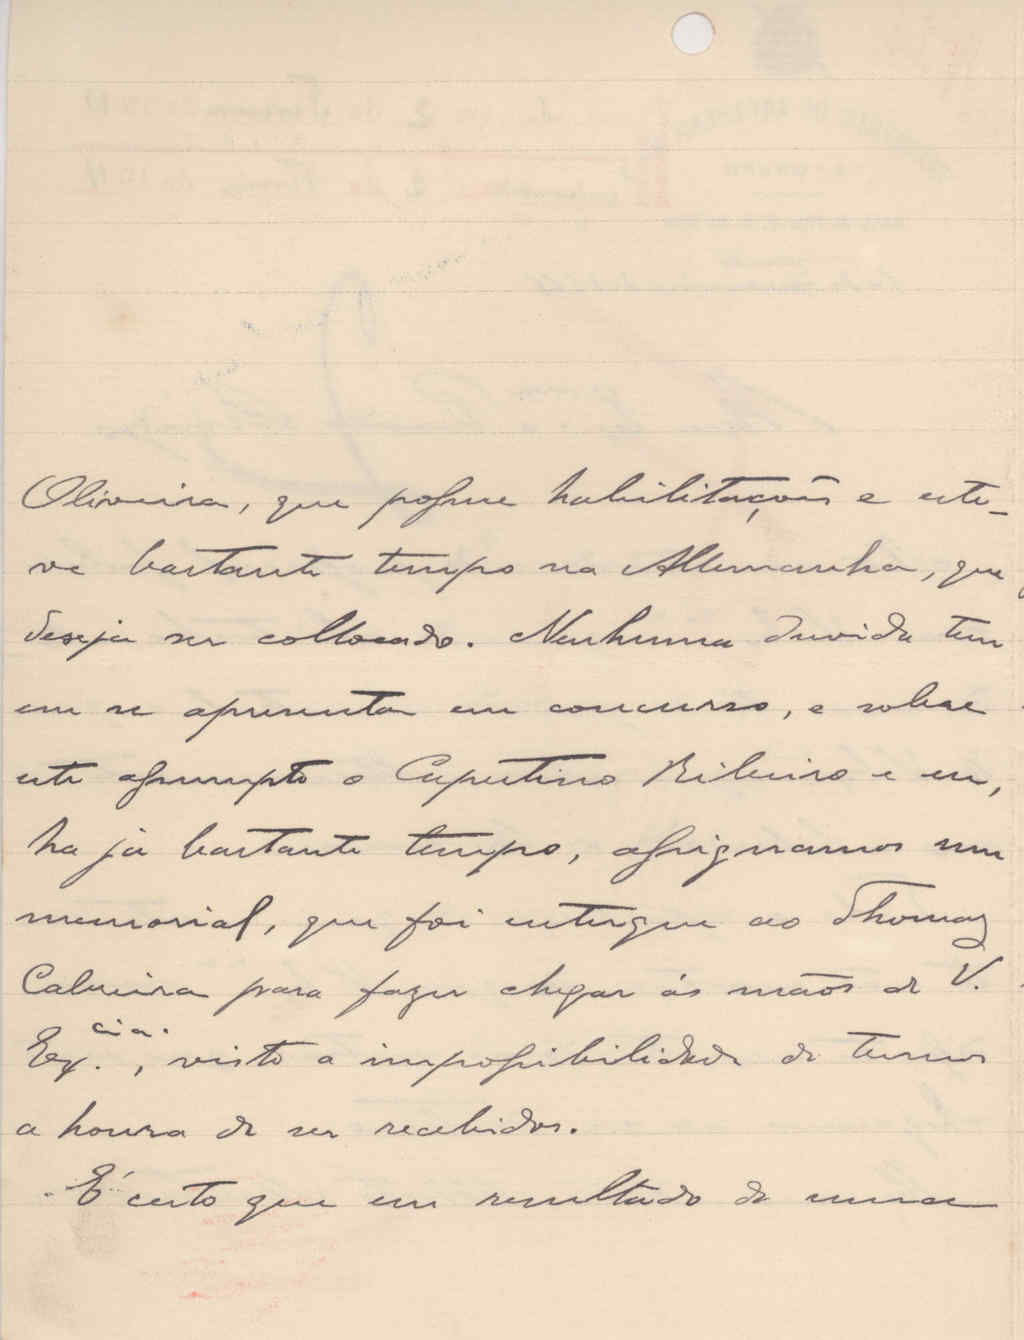 Oliveira, que possue habilitações e este-
ve bastante tempo na Allemanha, que
deseja ser collocado. Nenhuma duvida tem
em se apresentar em concurso, e sobre
este assumpto o Cupertino Ribeiro e eu,
ha já bastante tempo, assignamos um
memorial, que foi entregue ao Thomaz
Cabreira para fazer chegar ás mãos de V.
Ex.cia, visto a impossibilidade de termos
a honra de ser recebidos.
É certo que em resultado de uma